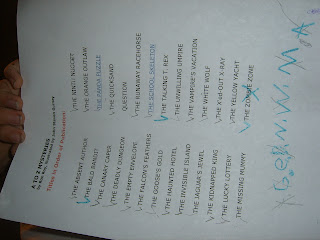 A TO Z MYSTERIES
Titles in Order of Publication!
THE ABSENT AUTHOR
THE BALD BANDIT
THE CANARY CAPER
THE DEADLY DUNGEON
THE EMPTY ENVELOPE
THE FALCON'S FEATHERS
THE GOOSE'S GOLD
THE HAUNTED HOTEL
THE INVISIBLE ISLAND
THE JAGUAR'S JEWEL
THE KIDNAPPED KING
THE LUCKY LOTTERY
THE MISSING MUMMY
THE NINTH NUGGET
THE ORANGE OUTLAW
THE PANDA PUZZLE
THE QUICKSAND
QUESTION
THE RUNAWAY RACEHORSE
THE SCHOOL SKELETON
THE TALKING T. REX
THE UNWILLING UMPIRE
THE VAMPIRE'S VACATION
THE WHITE WOLF
THE X'ED-OUT X-RAY
THE YELLOW YACHT
THE ZOMBIE ZONE